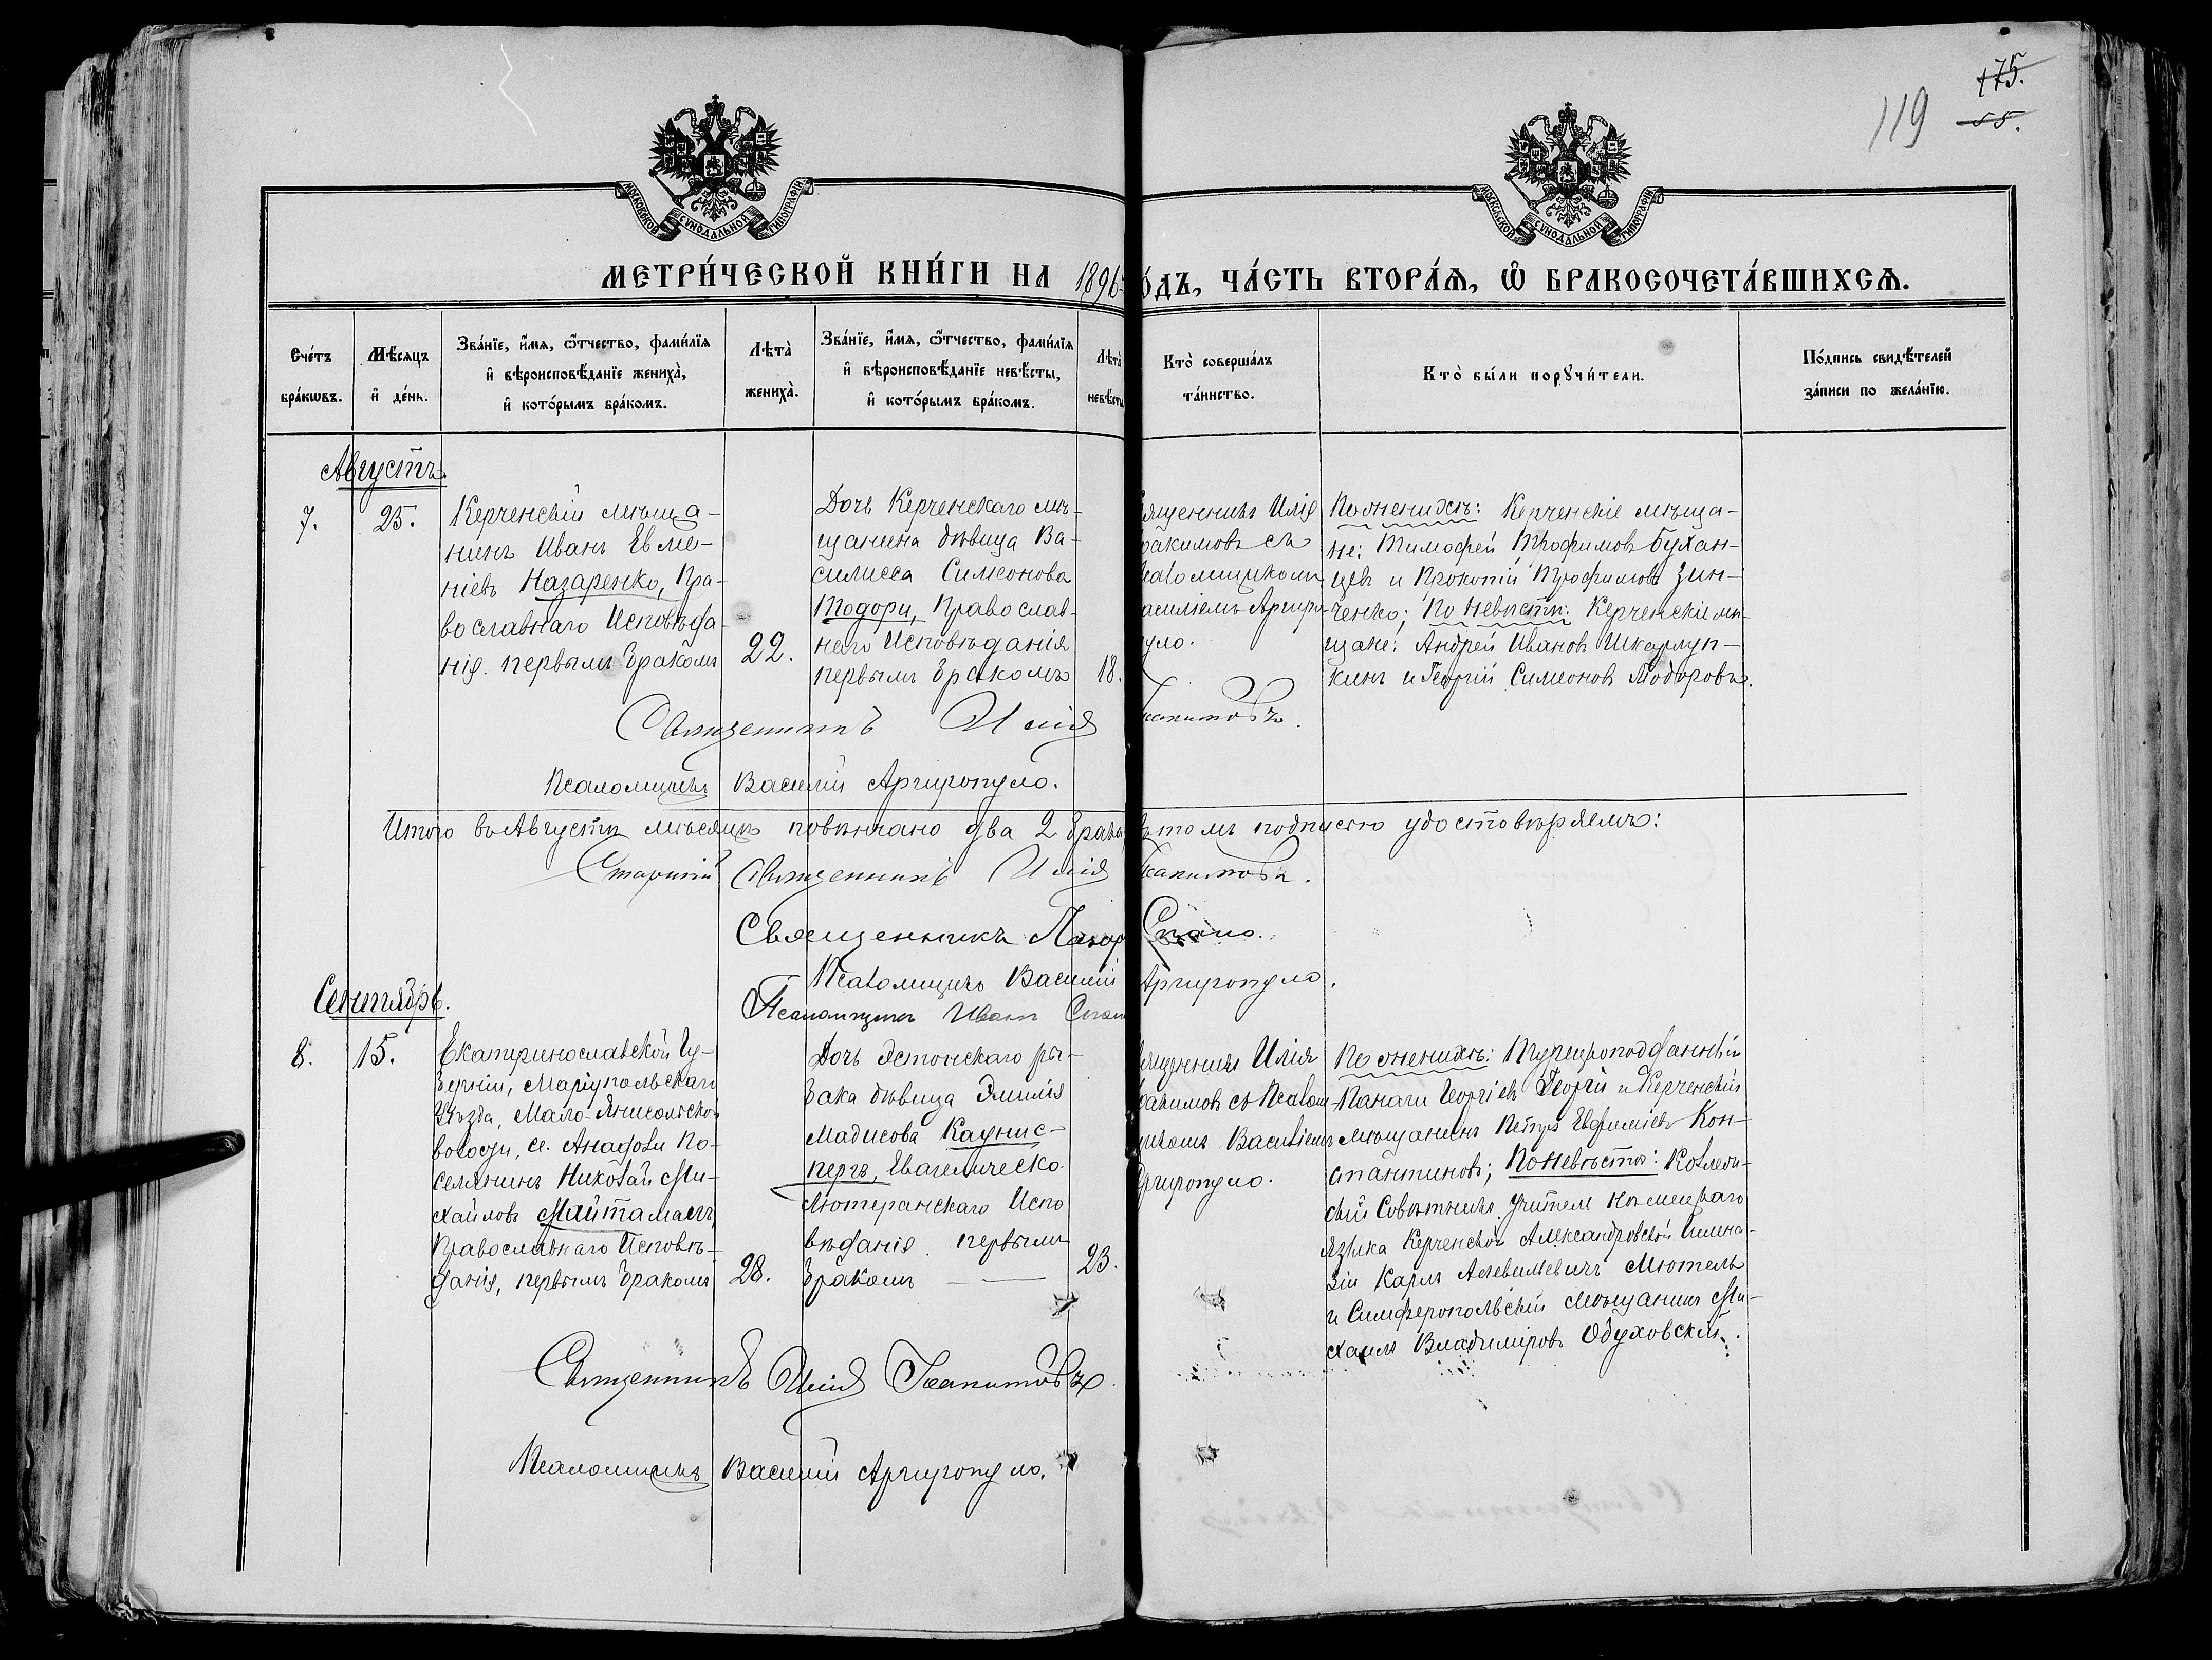 175.
119
55.
МОСКОВСКОЙ СѴНОДАЛЬНОЙ ТИПОГРАФІИ
МОСКОВСКОЙ СѴНОДАЛЬНОЙ ТИПОГРАФІИ
МЕТРИ́ЧЕСКОЙ КНИ́ГИ НА 1896 О́ДЪ, ЧА́СТЬ ВТОРА́Ѧ, Ѽ БРАКОСОЧЕТА́ВШИХСѦ.
Сче́тъ
бра́кѡвъ.
Мѣ́сяцъ
и҆ де́нь.
Зва́нїе, и҆́мѧ, ѻ҆́тчество, фами́лїѧ
и҆ вѣроисповѣ́данїе жениха̀,
и҆ кото́рымъ бра́комъ.
Лѣта̀
жениха̀.
Зва́нїе, и҆́мѧ, ѻ҆́тчество, фами́лїѧ
и҆ вѣроисповѣ́данїе невѣ́сты,
и҆ кото́рымъ бра́комъ.
Лѣта̀
невѣ́сты
Кто̀ соверша́лъ
та́инство.
Кто̀ бы́ли порꙋчи́тели.
По́дпись свидѣ́телей
за́писи по жела́нїю.
Августъ.
7.
25.
Керченскій мѣща-
нинъ Иванъ Евме-
ніевъ Назаренко, Пра-
вославнаго Исповѣда-
нія. первымъ бракомъ
22.
Дочь Керченскаго мѣ-
щанина дѣвица Ва-
силисса Симеонова
Тодори, Православ-
наго Исповѣданія
первымъ бракомъ
18.
ященникъ Илія
акимовъ съ
саломщикомъ
асиліемъ Аргиро-
уло.
По женихѣ: Керченскіе мѣща-
не: Тимофей Трофимовъ Бухан-
цевъ и Прокопій Трофимовъ Зин-
ченко; По невѣстѣ: Керченскіе мѣ-
щане: Андрей Ивановъ Шкарлуп-
кинъ и Георгій Симеоновъ Тодоровъ.
Священникъ Илія акимовъ.
Псаломщикъ Василій Аргиропуло.
Итого въ Августѣ мѣсяцѣ повѣнчано два 2 брака въ томъ подписью удостовѣряемъ:
Старшій Священникъ Илія акимовъ.
Священникъ Лазарь Спано.
Псаломщикъ Василій Аргиропуло.
Псаломщикъ Иванъ
Сентябрь.
8.
15.
Екатеринославской Гу-
берніи, Маріупольскаго
Уѣзда, Мало-Янисольской
волости, с. Анадоли По-
селянинъ Николай Ми-
хайловъ Майтамалъ,
Православнаго Исповѣ-
данія, первымъ бракомъ
28.
Дочь Эстонскаго ры-
бака дѣвица Эмилія
Мадисова Каунис-
перъ, Евагелическо-
Лютеранскаго Испо
вѣданія. первымъ
бракомъ — —
23.
ященникъ Илія
акимовъ съ Псалом-
щикомъ Василіемъ
Аргиропуло.
По женихѣ: Турецкоподданный
Панаги Георгіевъ Георги и Керченскій
мѣщанинъ Петръ Евфиміевъ Кон-
стантиновъ; По невѣстѣ: Коллеж-
скій Совѣтникъ Учитель Нѣмецкаго
языка Керченской Александровской Гимна-
зіи Карлъ Мютель
и Симферопольскій мѣщанинъ Ми-
хаилъ Владиміровъ Обуховскій.
Священникъ Илія акимовъ
Псаломщикъ Василій Аргиропуло.